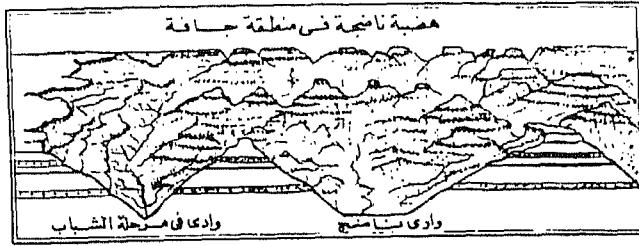 هضبة ناضجة فى منطقة جافة
وادى فى مرحلة الشباب
وادى